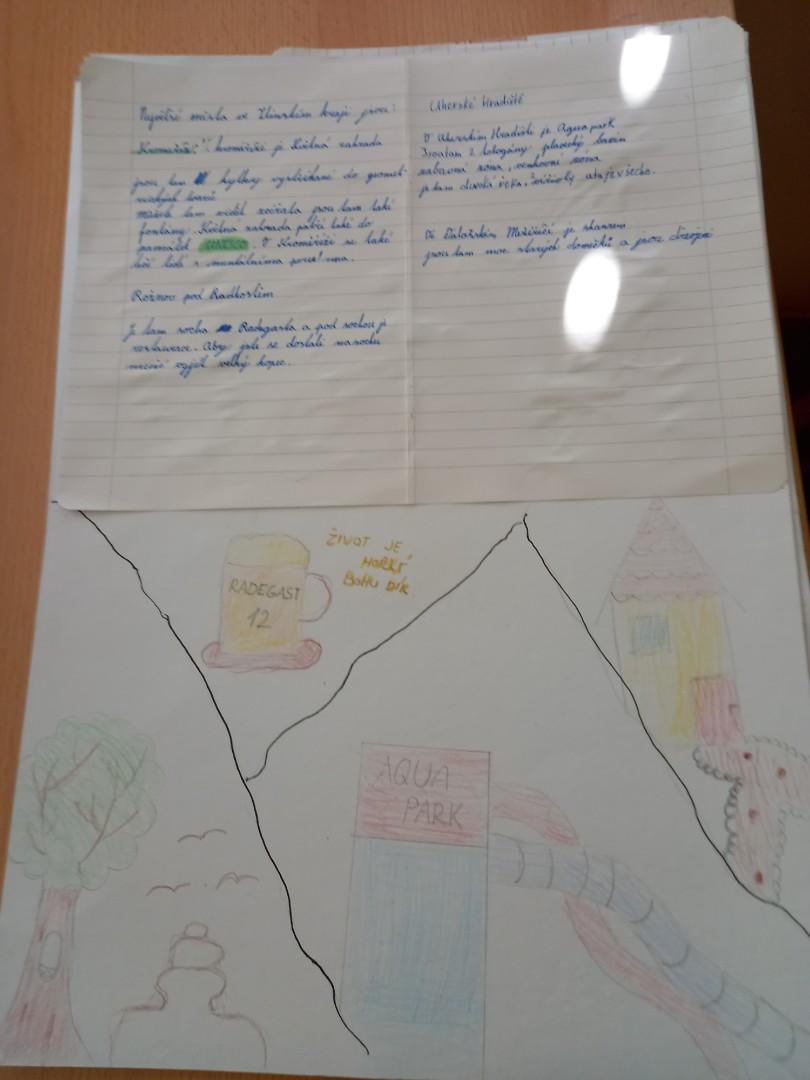 Největší města ve Zlínském kraji jsou:
Kroměříž: v kroměříži je Květná zahrada
jsou tam kytky vystříkané do geomet-
rických tvarů
můžeš tam vidět zvířata jsou tam také
fontány. Květná zahrada patří také do
památek UNESCO. V Kroměříži se také
léčí lidé s mentálníma
Rožnov pod Radhostěm
Je tam socha Radegasta a pod sochou je
restaurace. Aby jste se dostali na sochu
musíš vyjít velký kopec.
Uherské Hradiště
V Uherském Hradišti je Aquapark
3 tobogány, plavecký bazén
zabavná zóna, venkovní zóna
je tam divoká řeka, a to je všecho.
Ve Valašském Meziříčí je skanzen
jsou tam moc starých domečků a jsou
ŽIVOT JE
HOŘKÝ
BOHU DÍK
RADEGAST
12
AQUA
PARK